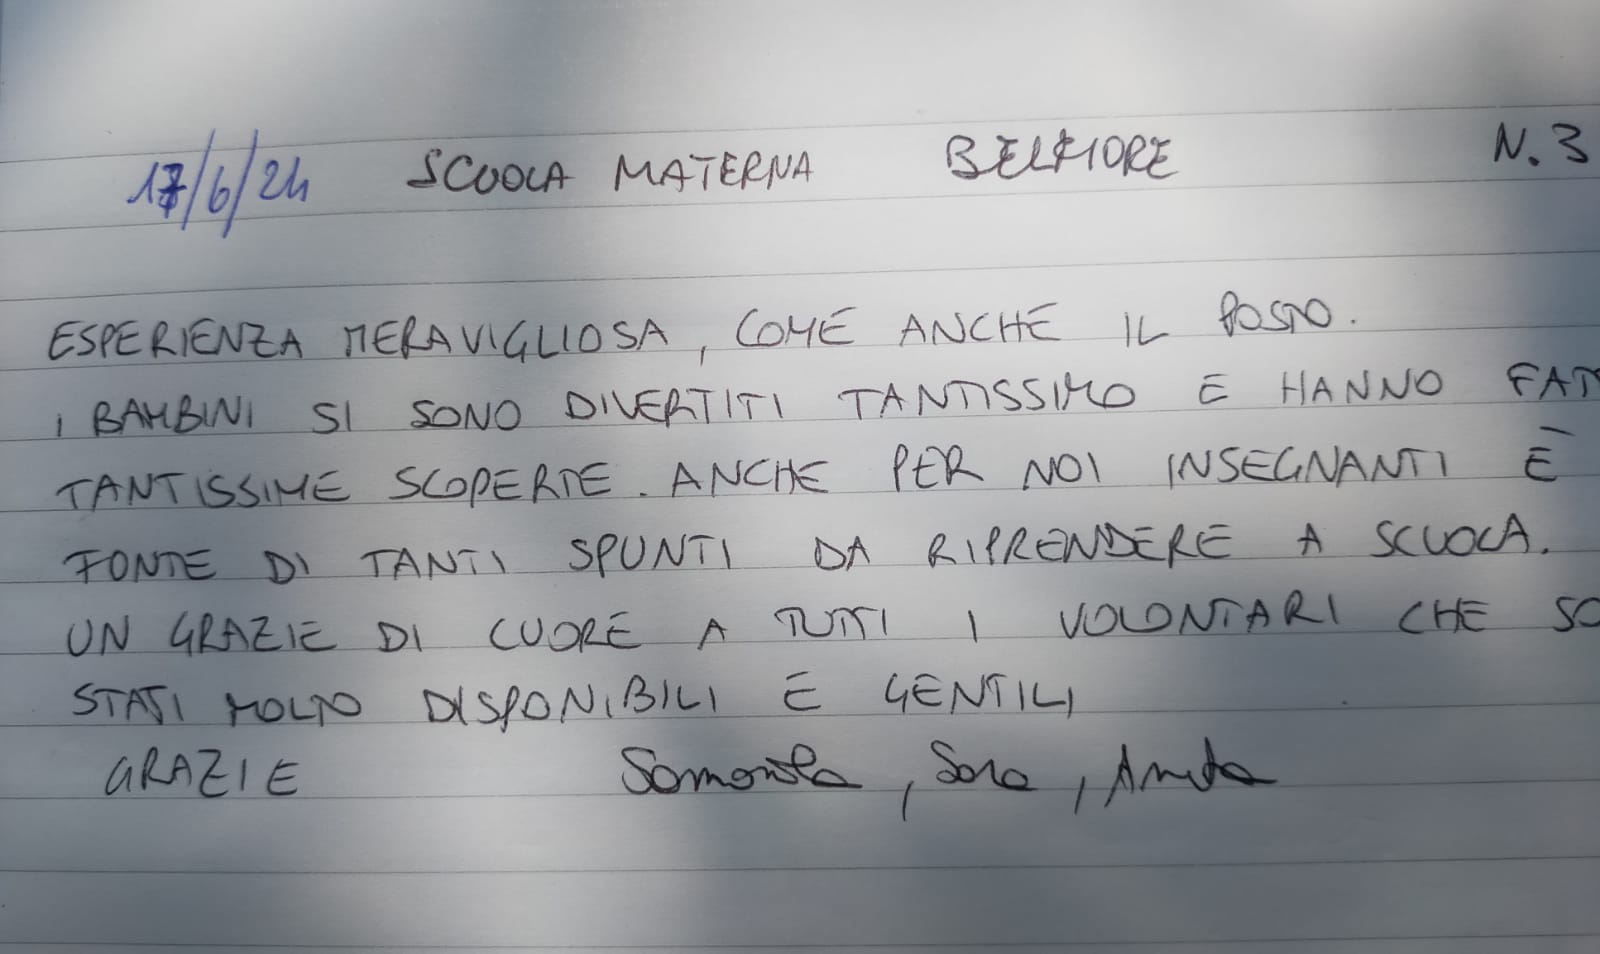 17/6/24 SCUOLA MATERNA BELFIORE N. 3
ESPERIENZA MERAVIGLIOSA, COME ANCHE IL POSTO.
I BAMBINI SI SONO DIVERTITI TANTISSIMO E HANNO FAT
TANTISSIME SCOPERTE. ANCHE PER NOI INSEGNANTI È
FONTE DI TANTI SPUNTI DA RIPRENDERE A SCUOLA.
UN GRAZIE DI CUORE A TUTTI I VOLONTARI CHE SO
STATI MOLTO DISPONIBILI E GENTILI
GRAZIE , Sara, Anita